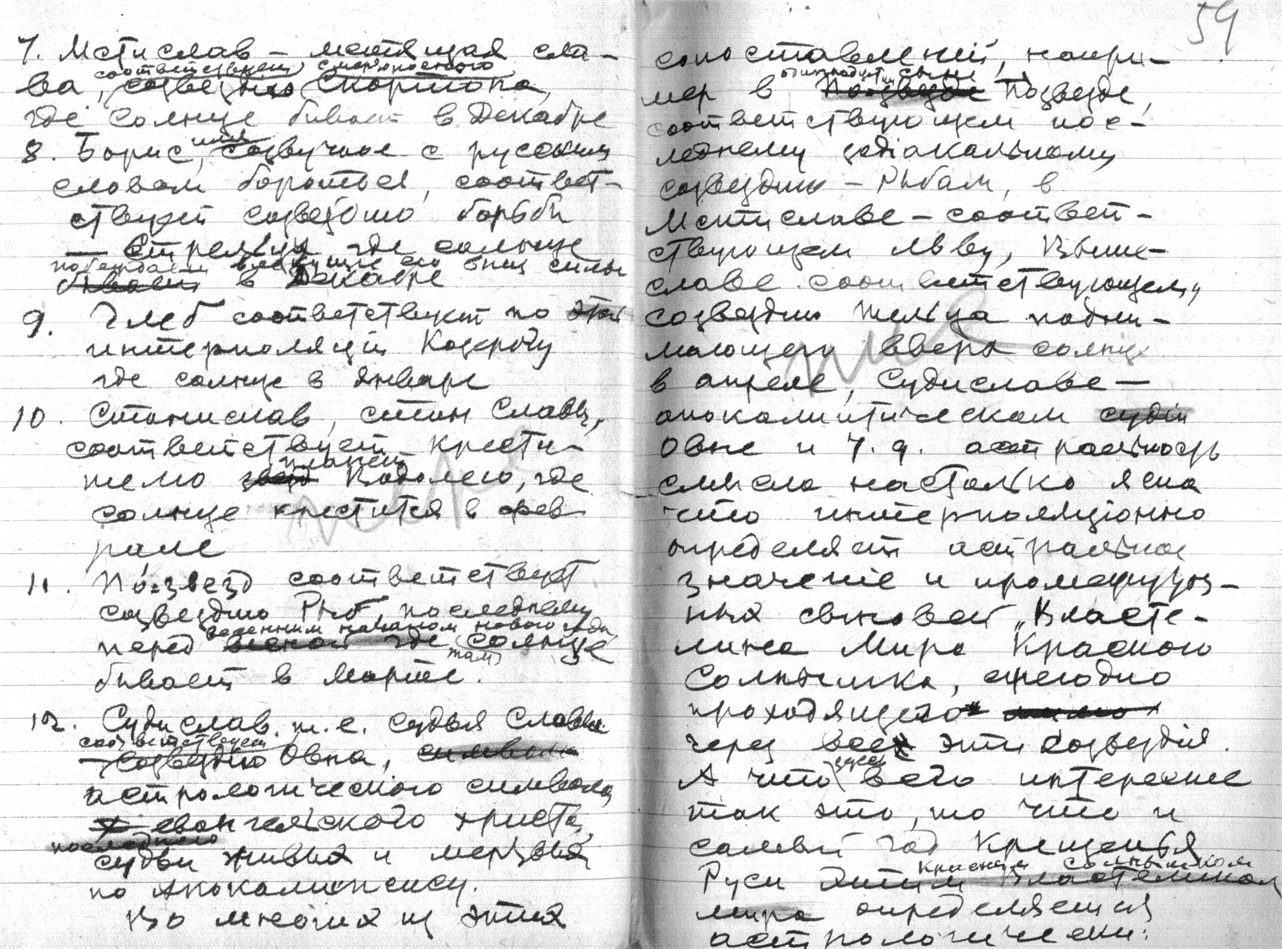 7. Мстислав – мстящая сла-
ва, соответствует смертоносного
созвездию Скорпiона,
где Солнце бывает в Декабре
8. Борис, имя созвучное с русским
словом бороться, соответ-
ствует созвездию борьбы
— Стрельцу где солнце
побеждает влекущие его вниз силы
бывает в Декабре
9. Глеб соответствует по этой
интерполяцiи Козерогу
где солнце в январе
10. Станислав, стан Славы,
соответствует крести-
телю планет Водолею, где
солнце крестится в фев-
рале
11. Позвезд соответствует
созвездию Рыб, последнему
перед весенним началом нового года
весной где солнце (там)
бывает в Марте.
12. Судислав, т.е. судья Славы
соответствует
— созвездию Овна, символ
астрологического символа
евангельского христа,
последнего
судьи живых и мертвых
по Апокалипсису.
Во многих из этих
59
сопоставленiй, напри-
мер в сыне Позвезде,
соответствующем пос-
леднему зодiакальному
созвездию – Рыбам, в
Мстиславе – соответ-
ствующем Льву, Выше-
славе соответствующему
созвездию Тельца подни-
мающего вверх солнце
в апреле, Судиславе —
апокалиптическом судiи
Овне и т.д. астральность
смысла настолько ясна
что интерполяцiонно
определяет астральное
значенiе и промежуточ-
ных сыновей „Власте-
лина Мира Красного
Солнышка, ежегодно
проходящего мимо
через все эти созвездiя.
А что здесь всего интереснее
так это, то что и
самый год Крещенья
Красным Солнышком
Руси этим Властелином
мира определяется
астрологически: